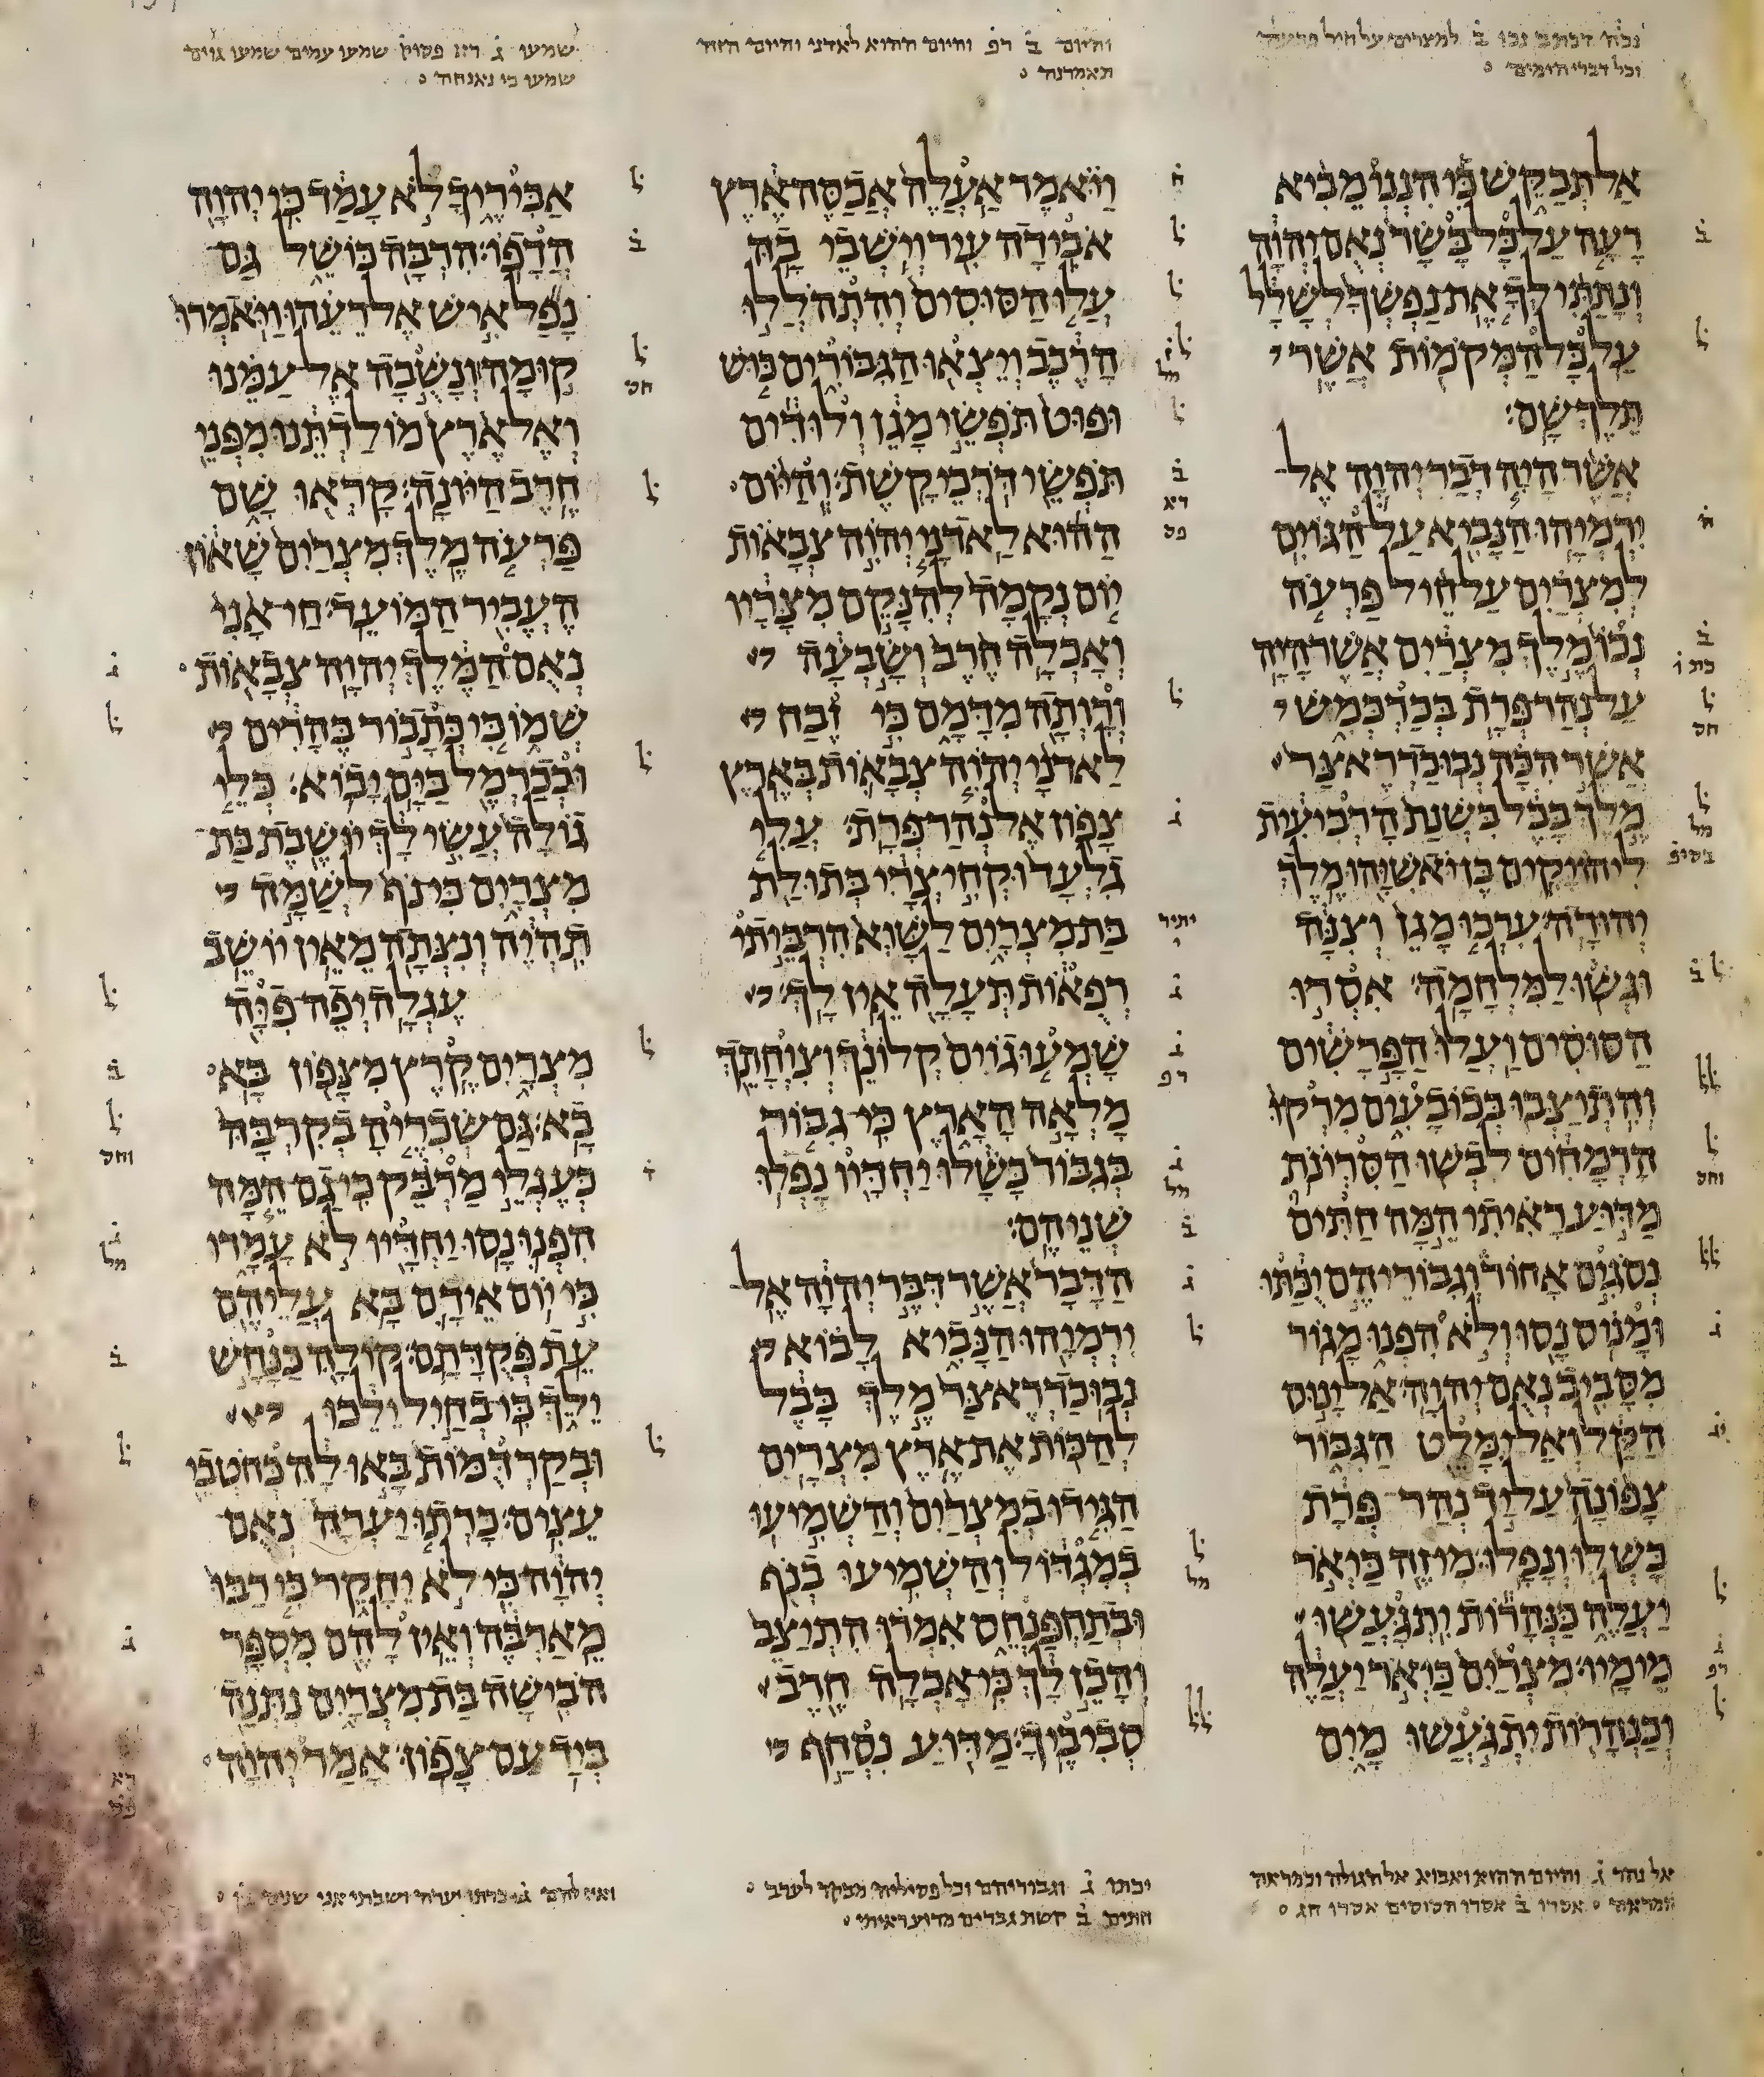 נכה דכתב נכו ב למצרים על חיל פרעה
וכל דברי הימים
והיום ב רפ והיום ההוא לאדני והיום הזה
תאמרנה
שמעו ג ראש פסוק שמעו עמים שמעו גוים
שמעו כי נאנחה
אל תבקש כי הנני מביא
רעה על כל בשר נאם יהוה
ונתתי לך את נפשך לשלל
על כל המקמות אשר
תלך שם׃
אשר היה דבר יהוה אל
ירמיהו הנביא על הגוים
למצרים על חיל פרעה
נכו מלך מצרים אשר היה
על נהר פרת בכרכמש
אשר הכה נבוכדראצר
מלך בבל בשנת הרביעית
ליהויקים בן יאשיהו מלך
יהודה׃ ערכו מגן וצנה
וגשו למלחמה׃ אסרו
הסוסים ועלו הפרשים
והתיצבו בכובעים מרקו
הרמחים לבשו הסרינת
מדוע ראיתי המה חתים
נסגים אחור וגבוריהם יכתו
ומנוס נסו ולא הפנו מגור
מסביב נאם יהוה׃ אל ינוס
הקל ואל ימלט הגבור
צפונה על יד נהר פרת
כשלו ונפלו׃ מי זה כיאר
יעלה כנהרות יתגעשו
מימיו׃ מצרים כיאר יעלה
וכנהרות יתגעשו מים
ויאמר אעלה אכסה ארץ
אבידה עיר וישבי בה
עלו הסוסים והתהללו
הרכב ויצאו הגבורים כוש
ופוט תפשי מגן ולודים
תפשי דרכי קשת׃ והיום
ההוא לאדני יהוה צבאות
יום נקמה להנקם מצריו
ואכלה חרב ושבעה
ורותה מדמם כי זבח
לאדני יהוה צבאות בארץ
צפון אל נהר פרת׃ עלי
גלעד וקחי צרי בתולת
בת מצרים לשוא הרביתי
רפאות תעלה אין לך׃
שמעו גוים קלונך וצוחתך
מלאה הארץ כי גבור
בגבור כשלו יחדיו נפלו
שניהם׃
הדבר אשר דבר יהוה אל
ירמיהו הנביא לבוא
נבוכדראצר מלך בבל
להכות את ארץ מצרים
הגידו במצרים והשמיעו
במגדול והשמיעו בנף
ובתחפנחס אמרו התיצב
והכן לך כי אכלה חרב
סביביך׃ מדוע נסחף
אביריך לא עמד כי יהוה
הדפו׃ הרבה כושל גם
נפל איש אל רעהו ויאמרו
קומה ונשבה אל עמנו
ואל ארץ מולדתנו מפני
חרב היונה׃ קראו שם
פרעה מלך מצרים שאון
העביר המועד׃ חי אני
נאם המלך יהוה צבאות
שמו כי כתבור בהרים
וככרמל בים יבוא׃ כלי
גולה עשי לך יושבת בת
מצרים כי נף לשמה
תהיה ונצתה מאין יושב
עגלה יפה פיה
מצרים קרץ מצפון בא
בא׃ גם שכריה בקרבה
כעגלי מרבק כי גם המה
הפנו נסו יחדיו לא עמדו
כי יום אידם בא עליהם
עת פקדתם׃ קולה כנחש
ילך כי בחיל ילכו
ובקרדמות באו לה כחטבי
עצים׃ כרתו יערה נאם
יהוה כי לא יחקר כי רבו
מארבה ואין להם מספר
הבישה בת מצרים נתנה
ביד עם צפון׃ אמר יהוה
אל נהר ג והיום ההוא ואבוא אל הגולה וכמראה
המראה אסרו ב אסרו הסוסים אסרו חג
יכתו ג וגבוריהם וכל פסיליה מבקר לערב
חתים ב קשת גברים מדוע ראיתי
ואין להם ג כרתו יערה ושבתי אני